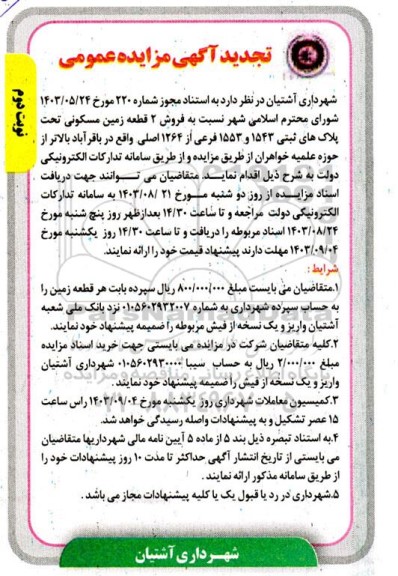 تجدید آگهی مزایده عمومی
نوبت دوم
شهرداری آشتیان در نظر دارد به استناد مجوز شماره ۲۲۰ مورخ ۱۴۰۳/۰۵/۲۴
شورای محترم اسلامی شهر نسبت به فروش ۲ قطعه زمین مسکونی تحت
پلاک های ثبتی ۱۵۴۳ و ۱۵۵۳ فرعی از ۱۲۶۴ اصلی واقع در باقرآباد بالاتر از
حوزه علمیه خواهران از طریق مزایده و از طریق سامانه تدارکات الکترونیکی
دولت به شرح ذیل اقدام نماید. متقاضیان می توانند جهت دریافت
اسناد مزایده از روز دو شنبه مورخ ۲۱ /۱۴۰۳/۰۸ به سامانه تدارکات
الکترونیکی دولت مراجعه و تا ساعت ۱۴/۳۰ بعدازظهر روز پنج شنبه مورخ
۱۴۰۳/۰۸/۲۴ اسناد مربوطه را دریافت و تا ساعت ۱۴/۳۰ روز یکشنبه مورخ
۱۴۰۳/۰۹/۰۴ مهلت دارند پیشنهاد قیمت خود را ارائه نمایند.
شرایط :
۱.متقاضیان می بایست مبلغ ۸۰۰/۰۰۰/۰۰۰ ریال سپرده بابت هر قطعه زمین را
به حساب سپرده شهرداری به شماره ۰۱۰۵۶۰۲۹۳۲۰۰۷ نزد بانک ملی شعبه
آشتیان واریز و یک نسخه از فیش مربوطه را ضمیمه پیشنهاد خود نمایند.
۲.کلیه متقاضیان شرکت در مزایده می بایستی جهت خرید اسناد مزایده
مبلغ ۲/۰۰۰/۰۰۰ ریال به حساب سیبا ۰۱۰۵۶۰۲۹۳۰۰۰۰ شهرداری آشتیان
واریز و یک نسخه از فیش را ضمیمه پیشنهاد خود نمایند.
۳.کمیسیون معاملات شهرداری روز یکشنبه مورخ ۱۴۰۳/۰۹/۰۴ راس ساعت
۱۵ عصر تشکیل و به پیشنهادات واصله رسیدگی خواهد شد.
۴.به استناد تبصره ذیل بند ۵ از ماده ۵ آیین نامه مالی شهرداریها متقاضیان
می بایستی از تاریخ انتشار آگهی حداکثر تا مدت ۱۰ روز پیشنهادات خود را
از طریق سامانه مذکور ارائه نمایند.
۵.شهرداری در رد یا قبول یک یا کلیه پیشنهادات مجاز می باشد .
شهرداری آشتیان